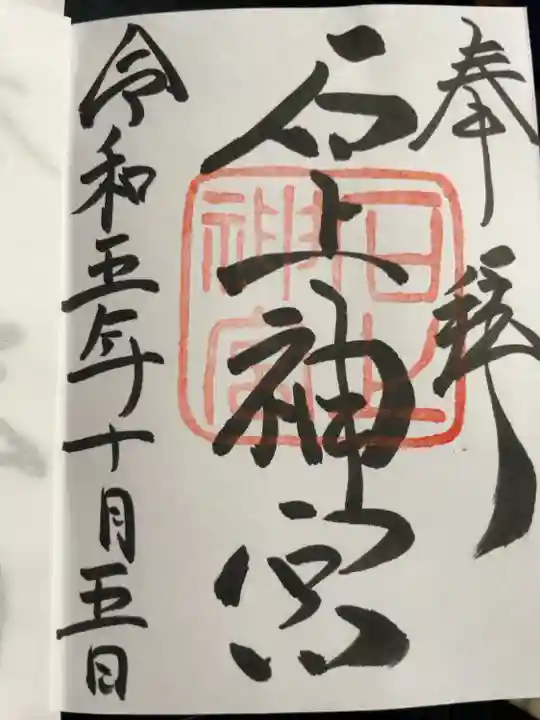 奉拝
石上神宮
石上神宮
令和五年十月五日